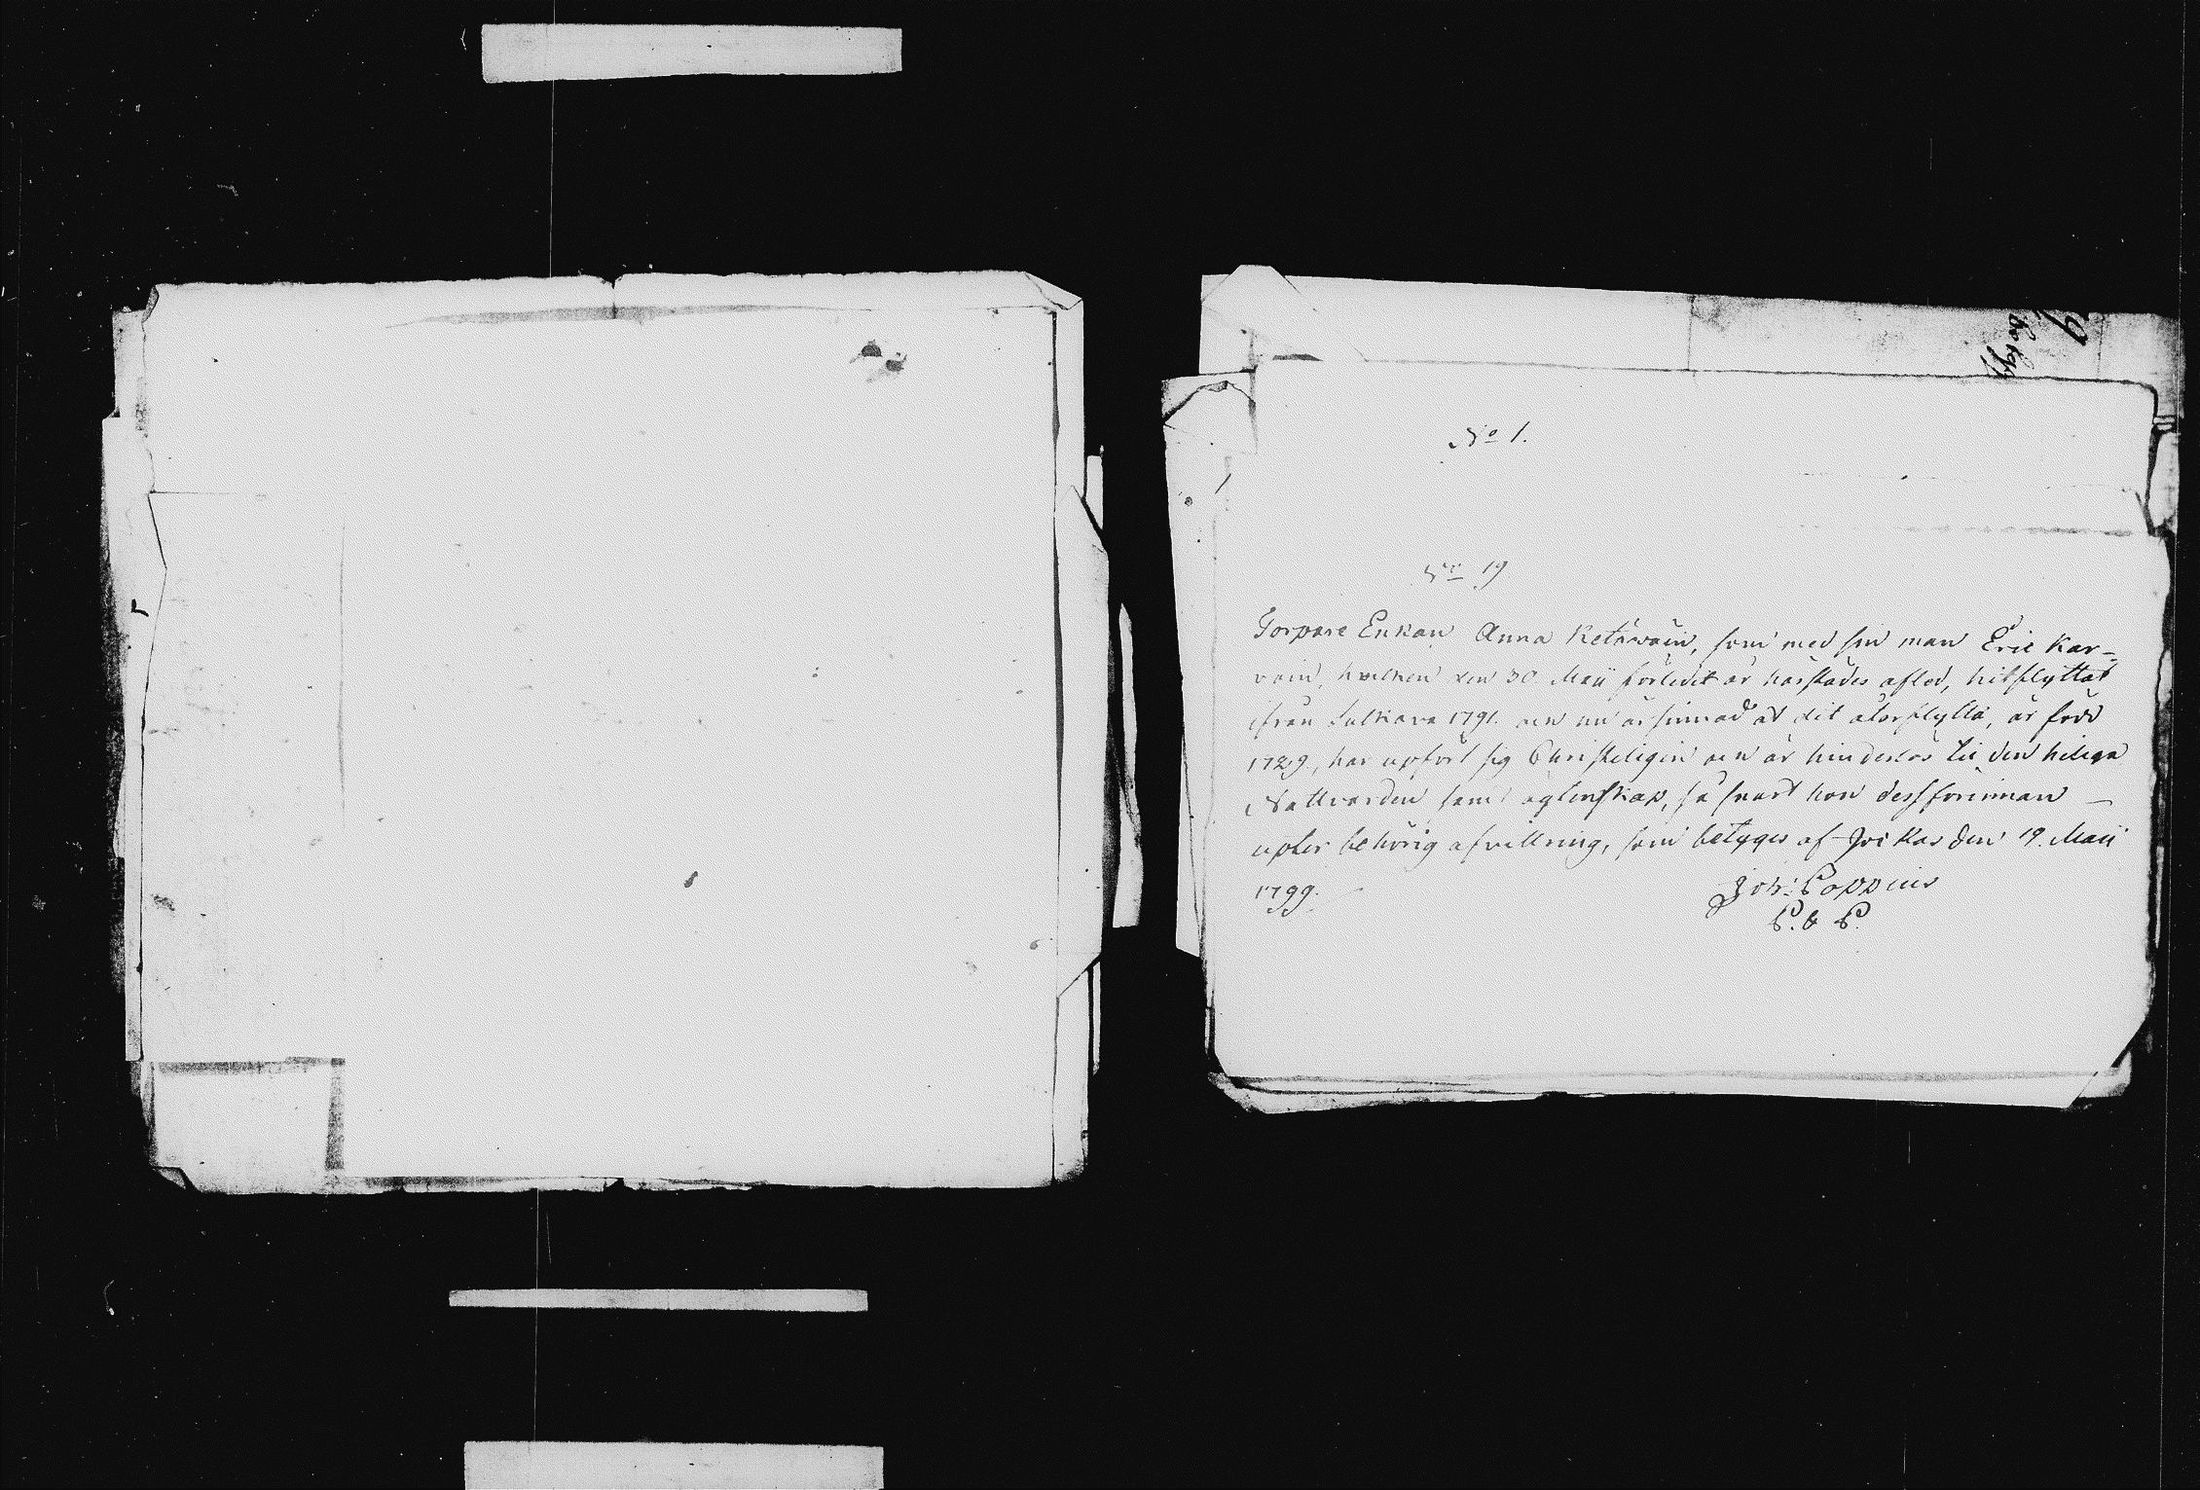 No 1.
No 19
Torpare Enkan Anna Ketäwäin, som med sin man Eric Kar-
vain, hvilken den 30 Maiiförledit år härstädes afled, hitflyttat
ifrån Sulkava 1791. och nu är sinnad at dit återflytta, är född
1729, har upfört sig Christeligin och är hinderlös til den heliga
Nattvarden samt ägtenskap, så snart hon dessförinnan
undergår behörig afvittring, som betyges af Joikas den 19. Maii
1799.
Joh: Poppius
P. & P.